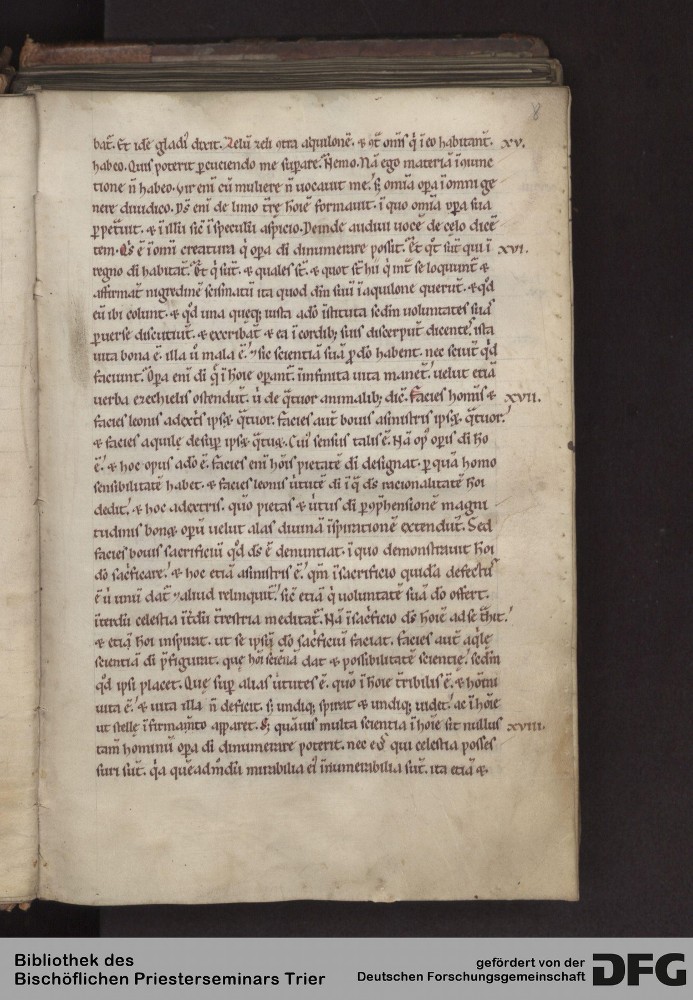 8
bat̄. Et idē gladi᷒ dixit. Zelū zeli ꝯtra aquilonē. ⁊ ꝯt̄ om̄s q̇ ī eo habitant̄. XV.
habeo. Quis poterit ꝑcuciendo me suꝑare. Nemo. Nā ego materiā ī iunc
tione n̄ habeo. vir enī cū muliere n̄ uocauit me. sꝫ omīa oꝑa ī omni ge
nere diuidico. Dꝰ enī de limo t̄re hoīē formauit. ī quo omīa oꝑa sua
ꝑpet̄uit. ⁊ ī illū sic̄ ī speculū aspicio. Deinde audiui uocē de celo dicē
tem. Qꝰ ē ī omī creatura q̇ oꝑa dī dinumerare possit. Et qt̄ sūt qui ī XVI.
regno dī habitāt. Et q̇ sūt. ⁊ quales st̄. ⁊ quot st̄ hii q̇ int̄ se loquunt̄ ⁊
affirmāt nigredinē scismatū ita quod dīm suū ī aquilone querūt. ⁊ qd̄
eū ibi colunt. ⁊ qd̄ una queqꝫ iusta ado īstituta sedm̄ uoluntates suas
ꝑuerse discutiūt. ⁊ excribāt ⁊ ea ī cordibꝫ suis discerpūt dicentes. ista
uita bona ē. illa ū mala ē. ⁊ sic scientiā suā ꝓ do habent. nec sciūt qd̄
faciunt. Oꝑa enī dī q̇ ī hoīe oꝑant̄. īinfinita uita manēt. uelut etiā
uerba ezechielis ostendūt. ū de q̄tuor animalibꝫ dic̄. Facies hominis ⁊ XVII.
facies leonis adext̄s ipsꝝ q̄tuor. facies aūt bouis asinistris ipsꝝ q̄tuor.
⁊ facies aquile desuꝑ ipsꝝ q̄tuꝝ. Cui᷒ sensus talis ē. Nā op᷒ oꝑis dī ho
ē. ⁊ hoc opus ado ē. facies enī hoīs pietatē dī designat. ꝑ quā homo
sensibilitatē habet. ⁊ facies leonis ūtutē dī ī q̇ dꝰ racionalitatē hoī
dedit. ⁊ hoc adextris. quo pietas ⁊ ūtus dī ꝑ ꝯp̄hensionē magni
tudinis bonꝝ oꝑū uelut alas diuinā īspirationē extendūt. Sed
facies bouis sacrificiū qd̄ dꝰ ē denuntiat. ī quo demonstrauit hoī
do sac̄ficare. ⁊ hoc etiā asinistris ē. qm̄ ī sacrificio quidā defectus
ē ū unū dat̄ ⁊ aliud relinquit̄. sic̄ etiā q̇ uoluntatē suā do offert.
īt̄endū celestia īt̄dū t̄restria meditat̄. Nā ī sac̄ficio dꝰ hoīē ad se t̄hit.
⁊ etiā hoī inspirat. ut se ipsū do sac̄ficiū faciat. facies aūt aq̇le
scientiā dī p̄figurat. que hoī scientiā dat ⁊ possibilitatē scientie. sedm̄
qd̄ ipsi placet. Que suꝑ alias ūtutes ē. quo ī hoīe t̄ribilis ē. ⁊ hoīni
uita ē. ⁊ uita illa n̄ deficit. sꝫ undiqꝫ spirat ⁊ undiqꝫ uidet. ac ī hoīe
ut stelle ī firmam̄to apparet. Sꝫ quāuis multa scientia ī hoīe sit nullus XVIII.
tam̄ hominū oꝑa dī dinumerare poterit. nec eos qui celestia posses
suri sūt. q̇a queadm̄dū mirabilia ei᷒ īnumerabilia sūt. ita etiā ⁊
Bibliothek des
Bischöflichen Priesterseminars Trier
gefördert von der
Deutschen Forschungsgemeinschaft
DFG